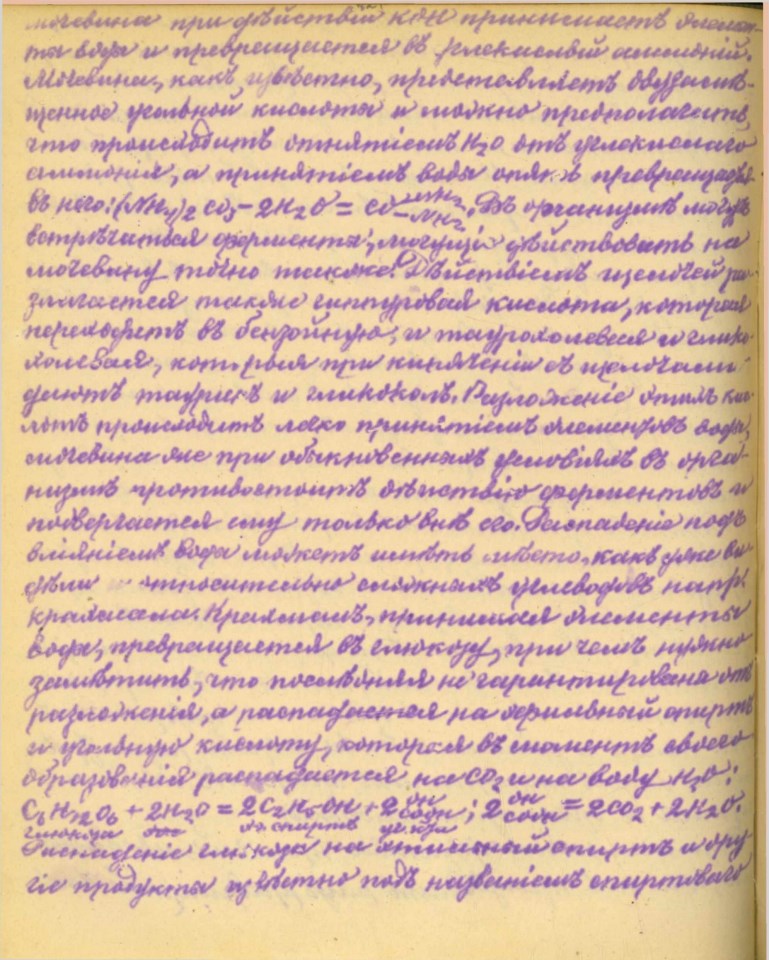 мочевина при дѣйствіи КОН принимаетъ элемен-
ты воды и превращается въ углекислый аммоній.
Мочевина, какъ извѣстно, представляетъ двузамѣ-
щенное угольной кислоты и можно предполагать,
что происходитъ отнятіемъ H2O отъ углекислаго
аммонія, а принятіемъ воды опять превращается
въ него: (NH4)2 CO3 - 2H2O = CO-NH2-NH2. Въ организмѣ могутъ
встрѣчаться ферменты, могущіе дѣйствовать на
мочевину точно также. Дѣйствіемъ щелочей раз-
лагается также гиппуровая кислота, которая
переходитъ въ бензойную, и таурохолевая и глико-
холевая, которыя при кипяченіи съ щелочами
даютъ тауринъ и гликоколъ. Разложеніе этихъ кис-
лотъ происходитъ легко принятіемъ элементовъ воды,
мочевина же при обыкновенныхъ условіяхъ въ орга-
низмѣ противостоитъ дѣйствію ферментовъ и
подвергается ему только внѣ его. Распаденіе подъ
вліяніемъ воды можетъ имѣть мѣсто, какъ уже ви-
дѣли относительно сложныхъ углеводовъ напр.
крахмала. Крахмалъ, принимая элементы
воды, превращается въ глюкозу, при чемъ нужно
замѣтить, что послѣдняя не гарантирована отъ
разложенія, а распадается на этильный спиртъ
и угольную кислоту, которая въ моментъ своего
образованія распадается на CO2 и на воду H2O:
C6H12O6 + 2H2O = 2C2H5OH + 2 OH COOH; 2 OH COOH = 2CO2 + 2H2O.
глюкоза спиртъ
Распаденіе глюкозы на этильный спиртъ и дру-
гіе продукты извѣстно подъ названіемъ спиртоваго